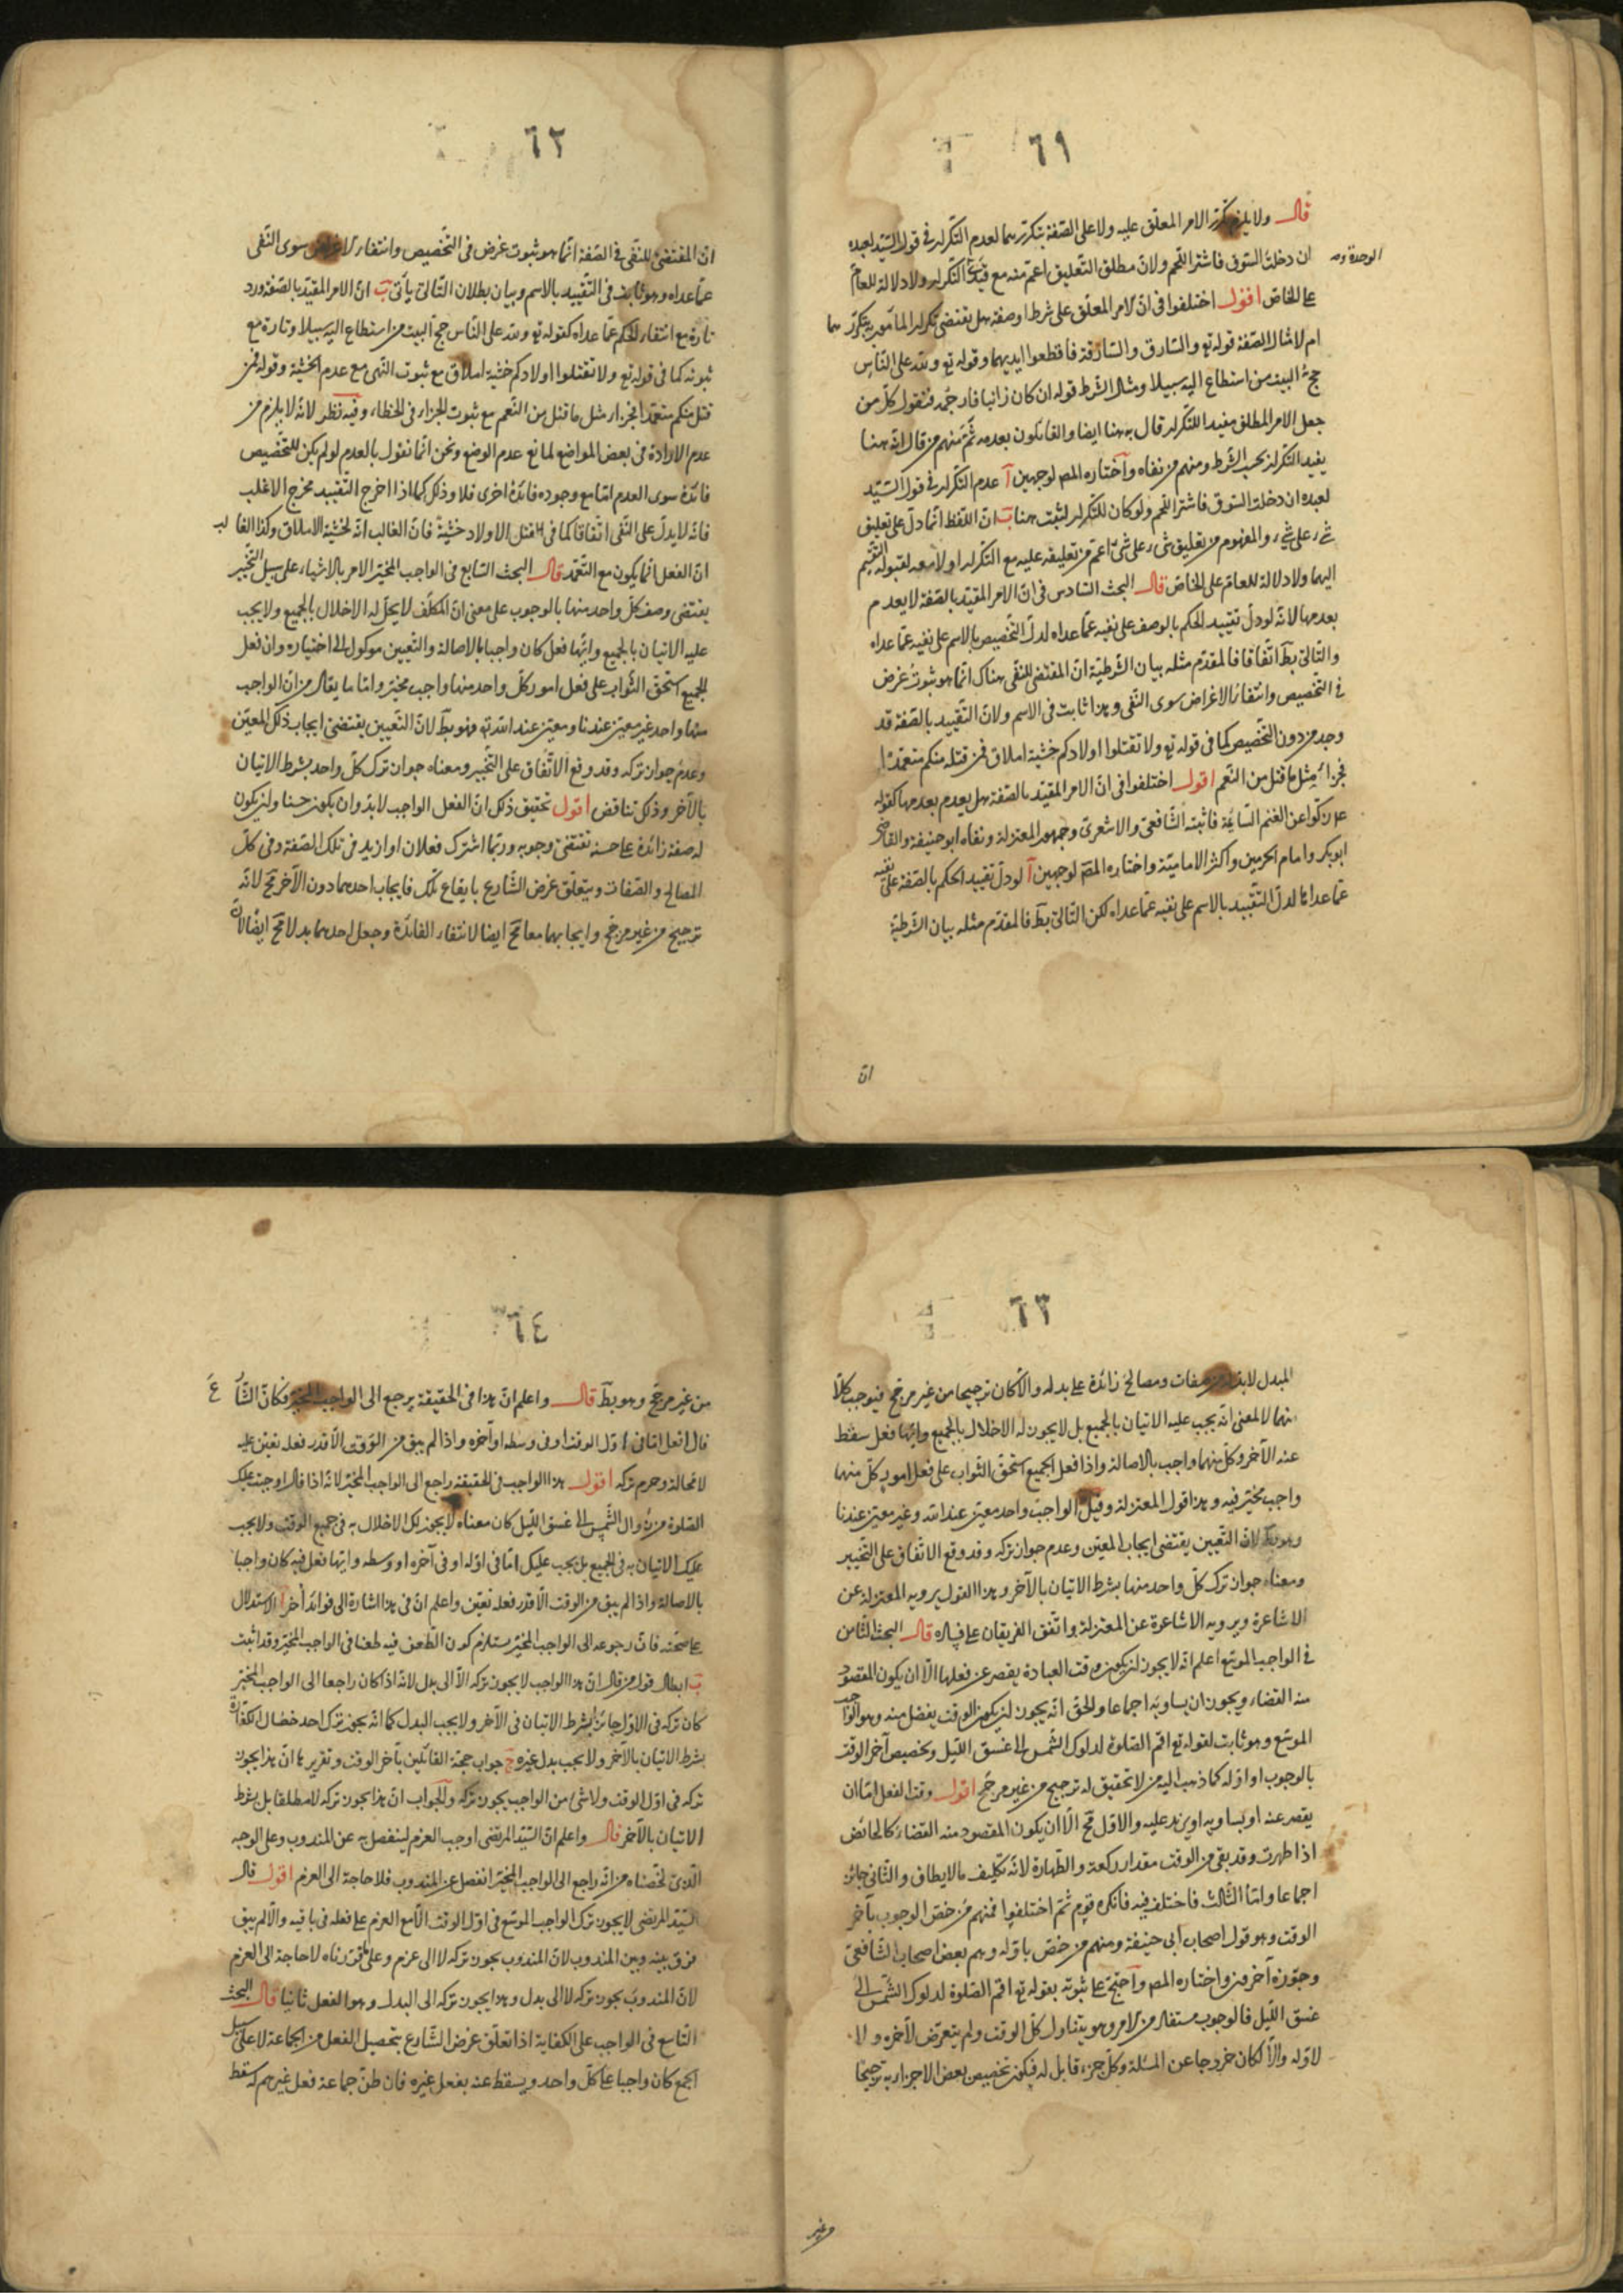 ٦١
قال ولا يلزم تكرّر الامر المعلّق عليه ولا على الصّفة بتكرّرهما لعدم التكرار فى قول السّيّد لعبده
ان دخلت السّوق فاشتر اللّحم ولانّ مطلق التّعليق اعمّ منه مع قيدى التّكرار ولا دلالة للعامّ
الوحدة
على الخاصّ اقول اختلفوا فى انّ الامر المعلّق على شرط او صفة هل يقتضى تكرار المأمور بتكرّرهما
ام لا مثال الصّفة قوله تع والسّارق والسّارقة فاقطعوا ايديهما وقوله تع ولله على النّاس
حجّ البيت من استطاع اليه سبيلا ومثال الشّرط قوله ان كان زانيا فارجمه فنقول كلّ من
جعل الامر المطلق مفيدا للتّكرار قال به هنا ايضا والقائلون بعدمه ثَمّ منهم من قال انّه هنا
يفيد التّكرار بحسب الشّرط ومنهم من نفاه واختاره المص لوجهين آ عدم التّكرار فى قول السّيّد
لعبده ان دخلت السّوق فاشتر اللّحم ولو كان للتّكرار لثبت هنا ب انّ اللّفظ انّما دلّ على تعليق
شئ على شئ والمفهوم من تعليق شئ على شئ اعمّ من تعليقه عليه مع التّكرار او لا معه لقبوله التقسيم
اليهما ولا دلالة للعامّ على الخاصّ قال البحث السّادس فى انّ الامر المقيّد بالصّفة لا يعدم
بعدمها لانّه لو دلّ تقييد الحكم بالوصف على نفيه عمّا عداه لدلّ التّخصيص بالاسم على نفيه عمّا عداه
والتّالى بط اتّفاقا فالمقدّم مثله بيان الشّرطيّة انّ المقتضى للنّفى هناك انّما هو ثبوت غرض
فى التّخصيص وانتفاء الاغراض سوى النّفى وهذا ثابت فى الاسم ولانّ التّقييد بالصّفة قد
وجد من دون التّخصيص كما فى قوله تع ولا تقتلوا اولادكم خشية املاق فمن قتله منكم متعمّدا
فجزاء مثل ما قتل من النّعم اقول اختلفوا فى انّ الامر المقيّد بالصّفة هل يعدم بعدمها كقوله
زكّوا عن الغنم السّائمة فاثبته الشّافعى والاشعرى وجمهور المعتزلة ونفاه ابو حنيفة والقاضى
ابو بكر وامام الحرمين واكثر الاماميّة واختاره المص لوجهين آ لو دلّ تقييد الحكم بالصّفة على نفيه
عمّا عداها لدلّ التّقييد بالاسم على نفيه عمّا عداه لكن التّالى بط فالمقدّم مثله بيان الشّرطيّة
انّ
٦٢
انّ المقتضى للنّفى فى الصّفة انّما هو ثبوت غرض فى التّخصيص وانتفاء الاغراض سوى النّفى
عمّا عداه وهو ثابت فى التّقييد بالاسم وبيان بطلان التّالى يأتى ب انّ الامر المقيّد بالصّفة ورد
تارة مع انتفاء الحكم عمّا عداه كقوله تع ولله على النّاس حجّ البيت من استطاع اليه سبيلا وتارة مع
ثبوته كما فى قوله تع ولا تقتلوا اولادكم خشية املاق مع ثبوت النّهى مع عدم الخشية وقوله فمن
قتل منكم متعمّدا فجزاء مثل ما قتل من النّعم مع ثبوت الجزاء فى الخطاء وفيه نظر لانّه لا يلزم من
عدم الارادة فى بعض المواضع لمانع عدم الوضع ونحن انّما نقول بالعدم لو لم يكن للتّخصيص
فائدة سوى العدم امّا مع وجوده فائدة اخرى فلا وذلك كما اذا اخرج التّقييد مخرج الاغلب
فانّه لا يدلّ على النّفى اتّفاقا كما فى قتل الاولاد خشية فانّ الغالب انّه لخشية الاملاق وكذا الغالب
انّ الفعل انّما يكون مع التّعمّد قال البحث السّابع فى الواجب المخيّر الامر بالاشياء على سبيل التّخيير
يقتضى وصف كلّ واحد منها بالوجوب على معنى انّ المكلّف لا يحلّ له الاخلال بالجميع ولا يجب
عليه الاتيان بالجميع وايّها فعل كان واجبا بالاصالة والتّعيين موكول الى اختياره وان فعل
الجميع استحقّ الثّواب على فعل امور كلّ واحد منها واجب مخيّر وامّا ما يقال من انّ الواجب
منها واحد غير معيّن عندنا ومعيّن عند الله تع فهو بط لانّ التّعيين يقتضى ايجاب ذلك المعيّن
وعدم جواز تركه وقد وقع الاتّفاق على التّخيير ومعناه جواز ترك كلّ واحد بشرط الاتيان
بالآخر وذلك تناقض اقول تحقيق ذلك انّ الفعل الواجب لا بدّ وان يكون حسنا وان يكون
له صفة زائدة على حسنه تقتضى وجوبه وربّما اشترك فعلان او ازيد فى تلك الصّفة وفى كلّ
المصالح والصّفات ويتعلّق غرض الشّارع بايقاع تلك فايجاب احدهما دون الآخر مح لانّه
ترجيح من غير مرجّح وايجابهما معا مح ايضا لانتفاء الفائدة وجعل احدهما بدلا مح ايضا لانّ
٦٣
المبدل لا بدّ له من صفات ومصالح زائدة على بدله والّا لكان ترجيحا من غير مرجّح فيوجب كلّا
منهما لا لمعنى انّه يجب عليه الاتيان بالجميع بل لا يجوز له الاخلال بالجميع وايّها فعل سقط
عنه الآخر وكلّ منهما واجب بالاصالة واذا فعل الجميع استحقّ الثّواب على فعل امور كلّ منها
واجب مخيّر فيه وهذا قول المعتزلة وقيل الواجب واحد معيّن عند الله وغير معيّن عندنا
وهو بط لانّ التّعيين يقتضى ايجاب المعيّن وعدم جواز تركه وقد وقع الاتّفاق على التّخيير
ومعناه جواز ترك كلّ واحد منها بشرط الاتيان بالآخر وهذا القول يرويه المعتزلة عن
الاشاعرة ويرويه الاشاعرة عن المعتزلة واتّفق الفريقان على فساده قال البحث الثّامن
فى الواجب الموسّع اعلم انّه لا يجوز ان يكون وقت العبادة يقصر عن فعلها الّا ان يكون المقصود
منه القضاء ويجوز ان يساويه اجماعا والحقّ انّه يجوز ان يكون الوقت يفضل منه وهو الواجب
الموسّع وهو ثابت لقوله تع اقم الصّلوة لدلوك الشّمس الى غسق اللّيل وتخصيص آخر الوقت
بالوجوب او اوّله كما ذهب اليه من لا تحقيق له ترجيح من غير مرجّح اقول وقت الفعل امّا ان
يقصر عنه او يساويه او يزيد عليه والاوّل مح الّا ان يكون المقصود منه القضاء كالحائض
اذا طهرت وقد بقى من الوقت مقدار ركعة والطّهارة لانّه تكليف ما لا يطاق والثّانى جائز
اجماعا وامّا الثّالث فاختلف فيه فانكره قوم ثمّ اختلفوا فمنهم من خصّ الوجوب بآخر
الوقت وهو قول اصحاب ابى حنيفة ومنهم من خصّ باوّله وهم بعض اصحاب الشّافعى
وجوّزه آخرون واختاره المص واحتجّ على ثبوته بقوله تع اقم الصّلوة لدلوك الشّمس الى
غسق اللّيل فالوجوب مستفاد من الامر وهو يتناول كلّ الوقت ولم يتعرّض لآخره ولا
لاوّله والّا لكان خروجا عن المسئلة وكلّ جزء قابل له فيكون تخصيص بعض الاجزاء به ترجيحا
وغير
٦٤
من غير مرجّح وهو بط قال واعلم انّ هذا فى الحقيقة يرجع الى الواجب المخيّر فكانّ الشّارع
قال افعل امّا فى اوّل الوقت او فى وسطه او آخره واذا لم يبق من الوقت الّا قدر فعله تعيّن عليه
لا محالة وحرم تركه اقول هذا الواجب فى الحقيقة راجع الى الواجب المخيّر لانّه اذا قال اوجبت عليك
الصّلوة من زوال الشّمس الى غسق اللّيل كان معناه لا يجوز لك الاخلال به فى جميع الوقت ولا يجب
عليك الاتيان به فى الجميع بل يجب عليك امّا فى اوّله او فى آخره او وسطه وايّها فعل فيه كان واجبا
بالاصالة واذا لم يبق من الوقت الّا قدر فعله تعيّن واعلم انّ فى هذا اشارة الى فوائد أخر آ الاستدلال
على صحّته فانّ رجوعه الى الواجب المخيّر يستلزم كون الطّعن فيه طعنا فى الواجب المخيّر وقد اثبت
ب ابطال قول من قال انّ هذا الواجب لا يجوز تركه الّا الى بدل لانّه اذا كان راجعا الى الواجب المخيّر
كان تركه فى الاوّل جائزا بشرط الاتيان فى الآخر ولا يجب البدل كما انّه يجوز ترك احد خصال الكفّارة
بشرط الاتيان بالآخر ولا يجب بدل غيره ج جواب حجّة القائلين بآخر الوقت وتقريرها انّ هذا يجوز
تركه فى اوّل الوقت ولا شئ من الواجب يجوز تركه والجواب انّ هذا يجوز تركه لا مطلقا بل بشرط
الاتيان بالآخر قال واعلم انّ السّيّد المرتضى اوجب العزم لينفصل به عن المندوب وعلى الوجه
الّذى لخّصناه من انّه راجع الى الواجب المخيّر انفصل عن المندوب فلا حاجة الى العزم اقول قال
السّيّد المرتضى لا يجوز ترك الواجب الموسّع فى اوّل الوقت الّا مع العزم على فعله فى باقيه والّا لم يبق
فرق بينه وبين المندوب لانّ المندوب يجوز تركه لا الى عزم وعلى ما قرّرناه لا حاجة الى العزم
لانّ المندوب يجوز تركه لا الى بدل وهذا يجوز تركه الى البدل وهو الفعل ثانيا قال البحث
التّاسع فى الواجب على الكفاية اذا تعلّق غرض الشّارع بتحصيل الفعل من الجماعة لا على سبيل
الجمع كان واجبا على كلّ واحد ويسقط عنه بفعل غيره فان ظنّ جماعة فعل غيرهم له سقط